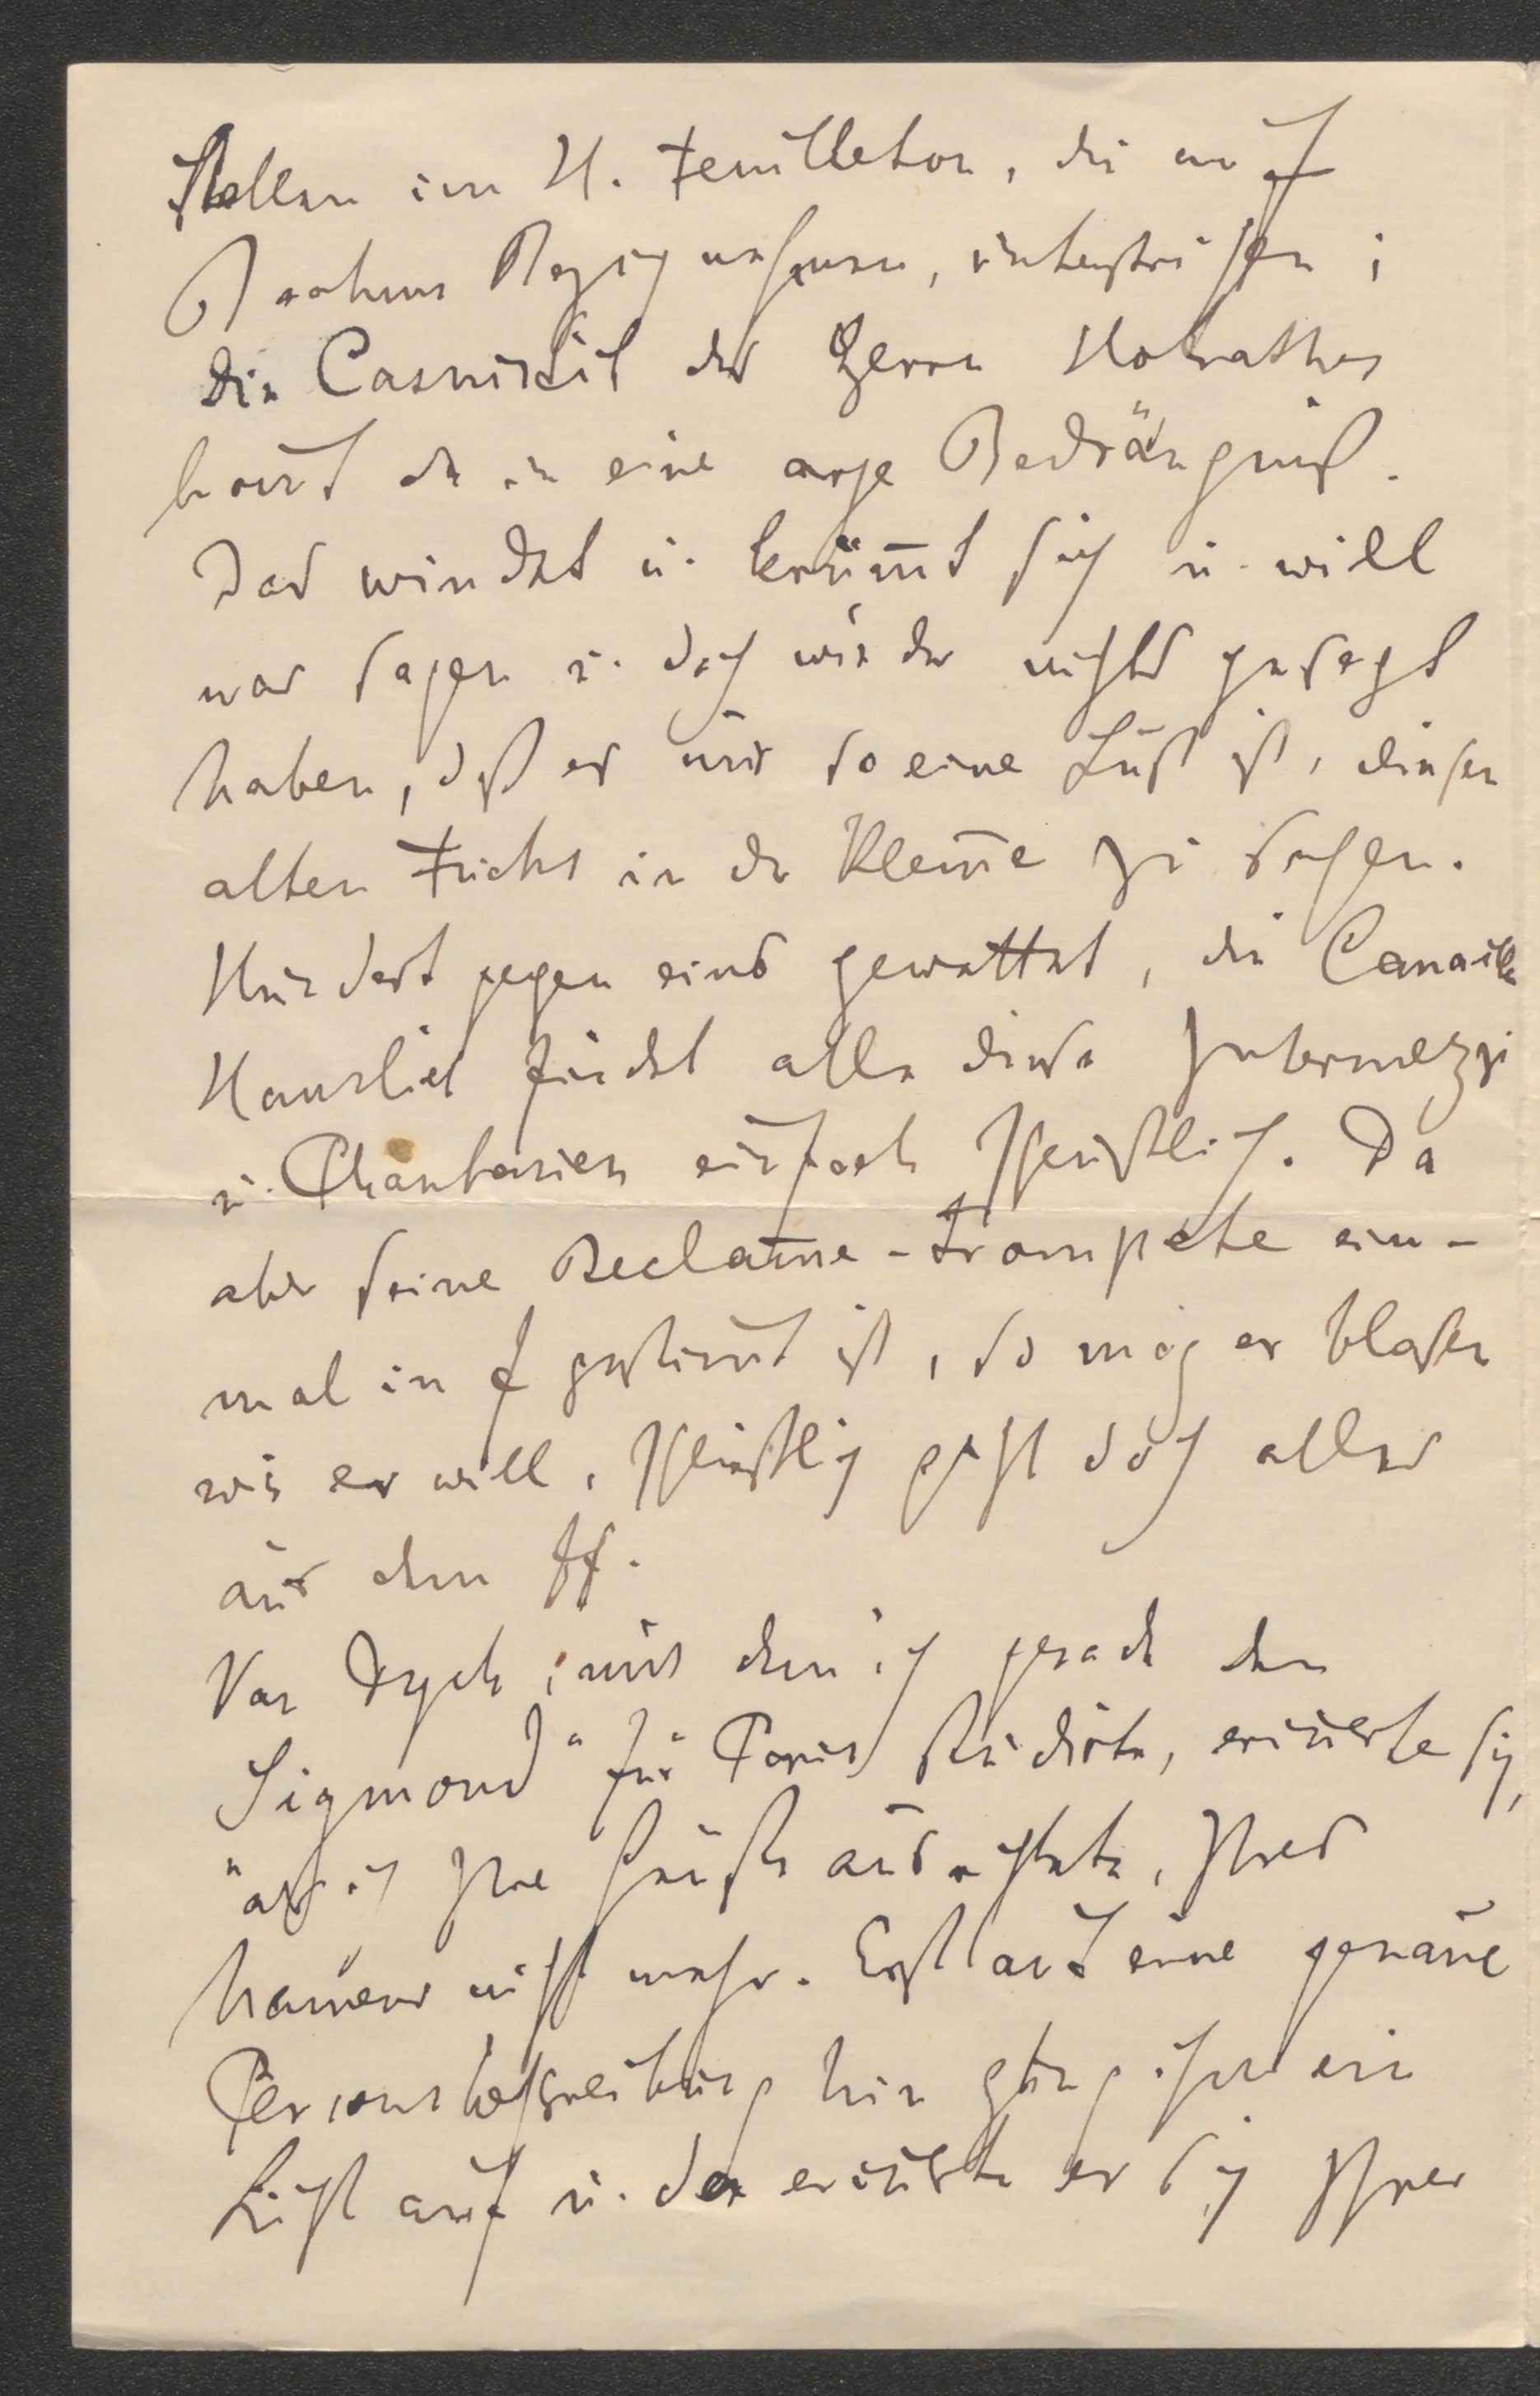 Stellen im H. Feuilleton, die auf
Brahms Bezug nehmen, unterstrichen;
die Casuistik des Herrn Hofrathes
kom̅t da in eine arge Bedrängniß.
Das windet u. krüm̅t sich u. will
was sagen u. doch wieder nichts gesagt
haben, daß es mir so eine Lust ist, diesen
alten Fuchs in der Klem̅e zu sehen.
Hundert gegen eins gewettet, die Canaille
Hanslick findet alle diese Intermezzi
u. Phantasien einfach scheußlich. Da
aber seine Reclame-Trompete ein-
mal in F gestim̅t ist, so mag er blasen
wie er will, schließlich geht doch alles
aus dem ff.
Van Dyck, mit dem ich gerade den
Sigmund" für Paris studirte, erinnerte sich,
"als ich Ihre Grüße ausrichtete, Ihres
Namens nicht mehr. Erst auf eine genaue
Personsbeschreibung hin ging ihm ein
Licht auf u. da erinnerte er sich Ihrer